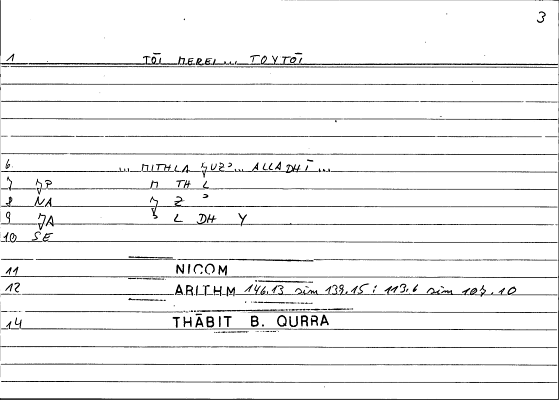 3
1 TŌI MEREI ... TOYTŌI
6 ... MITHLA ǦUZʾ ... ALLADHĪ ...
7 ǦP M TH L
8 NA Ǧ Z ʾ
9 ǦA ʾ L DH Y
10 SE
11 NICOM
12 ARITHM 146.13 sim 139.15; 113.6 sim 107.10
14 THĀBIT B. QURRA